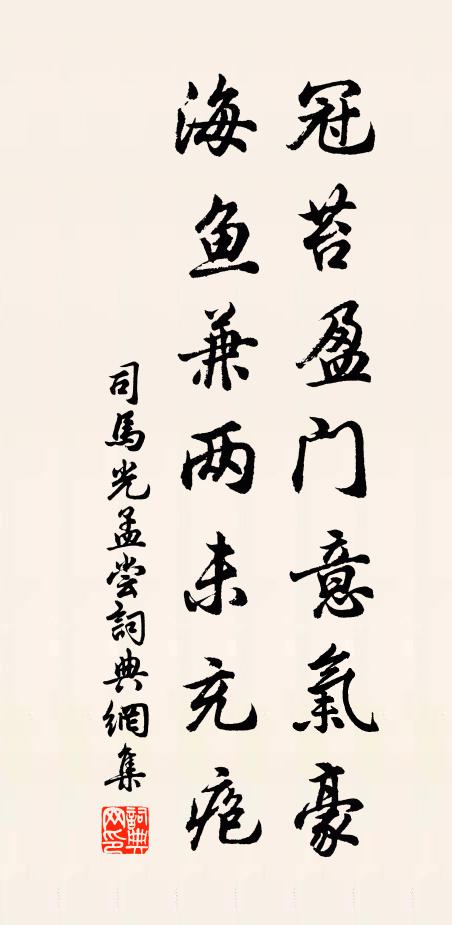 冠苔盈门意氣豪
海鱼兼两未充疱
司馬光孟尝詞典網集
詞典网印